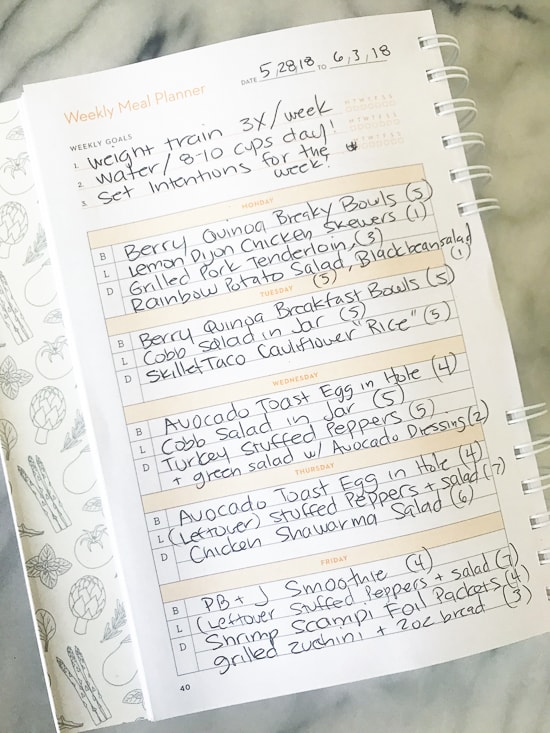 DATE 5,28,18 TO 6,3,18
Weekly Meal Planner
WEEKLY GOALS
M T W T F S S
1. weight train 3X/week
M T W T F S S
2. water/8-10 cups day!
M T W T F S S
3. Set intentions for the
week!
MONDAY
B Berry Quinoa Breaky Bowls (5)
L Lemon Dijon Chicken Skewers (1)
D Grilled Pork Tenderloin, (3)
Rainbow Potato Salad, Black bean salad
(5) (1)
TUESDAY
B Berry Quinoa Breakfast Bowls (5)
L Cobb Salad in Jar (5)
D Skillet Taco Cauliflower "Rice" (5)
WEDNESDAY
B Avocado Toast Egg in Hole (4)
L Cobb Salad in Jar (5)
D Turkey Stuffed Peppers (5)
+ green salad w/ Avocado Dressing (2)
THURSDAY
B Avocado Toast Egg in Hole (4)
L (Leftover) Stuffed Peppers + salad (7)
D Chicken Shawarma Salad (6)
FRIDAY
B PB + J Smoothie (4)
L (Leftover Stuffed Peppers + salad (7)
D Shrimp Scampi Foil Packets (4)
grilled zuchini + 2oz bread (3)
40